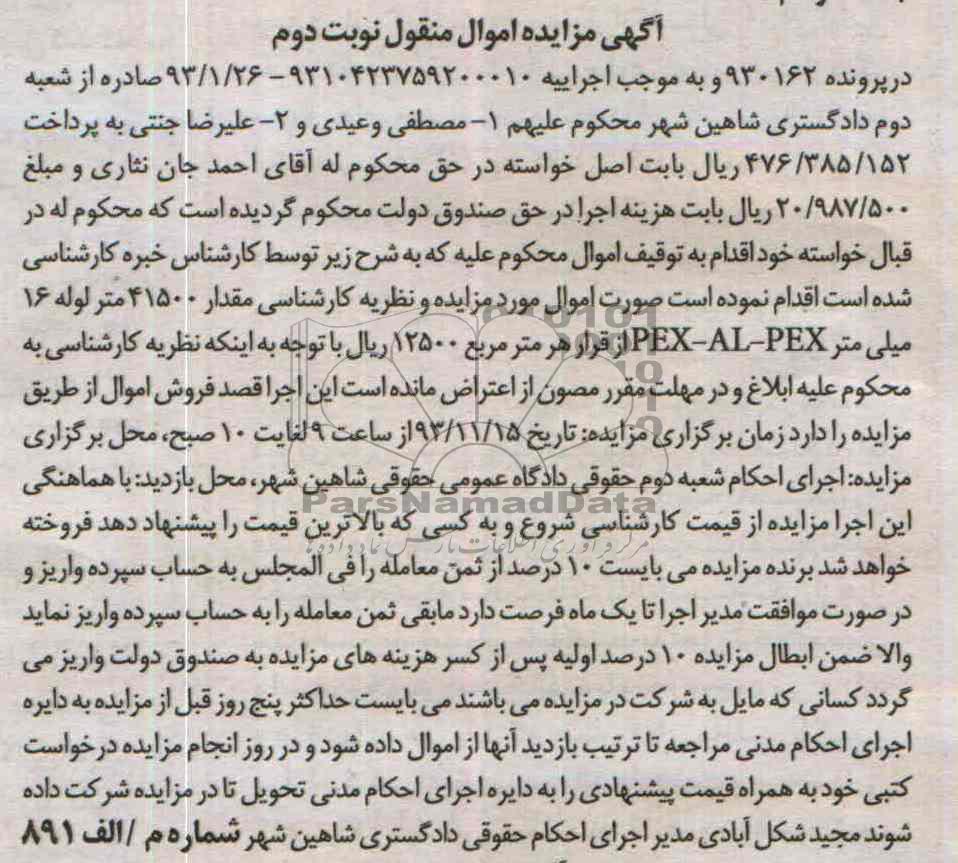 آگهی مزایده اموال منقول نوبت دوم
درپرونده ۹۳۰۱۶۲ و به موجب اجراییه ۹۳۱۰۴۲۳۷۵۹۲۰۰۰۱۰ – ۹۳/۱/۲۶ صادره از شعبه
دوم دادگستری شاهین شهر محکوم علیهم ۱- مصطفی وعیدی و ۲- علیرضا جنتی به پرداخت
۴۷۶/۳۸۵/۱۵۲ ریال بابت اصل خواسته در حق محکوم له آقای احمد جان نثاری و مبلغ
۲۰/۹۸۷/۵۰۰ ریال بابت هزینه اجرا در حق صندوق دولت محکوم گردیده است که محکوم له در
قبال خواسته خود اقدام به توقیف اموال محکوم علیه که به شرح زیر توسط کارشناس خبره کارشناسی
شده است اقدام نموده است صورت اموال مورد مزایده و نظریه کارشناسی مقدار ۴۱۵۰۰ متر لوله ۱۶
میلی متر PEX-AL-PEX از قرار هر متر مربع ۱۲۵۰۰ ریال با توجه به اینکه نظریه کارشناسی به
محکوم علیه ابلاغ و در مهلت مقرر مصون از اعتراض مانده است این اجرا قصد فروش اموال از طریق
مزایده را دارد زمان برگزاری مزایده: تاریخ ۹۳/۱۱/۱۵ از ساعت ۹ لغایت ۱۰ صبح، محل برگزاری
مزایده: اجرای احکام شعبه دوم حقوقی دادگاه عمومی حقوقی شاهین شهر، محل بازدید: با هماهنگی
ParsNamadData
این اجرا مزایده از قیمت کارشناسی شروع و به کسی که بالاترین قیمت را پیشنهاد دهد فروخته
مرکز فرآوری اطلاعات پارس نماد داده ها
خواهد شد برنده مزایده می بایست ۱۰ درصد از ثمن معامله را فی المجلس به حساب سپرده واریز و
در صورت موافقت مدیر اجرا تا یک ماه فرصت دارد مابقی ثمن معامله را به حساب سپرده واریز نماید
والا ضمن ابطال مزایده ۱۰ درصد اولیه پس از کسر هزینه های مزایده به صندوق دولت واریز می
گردد کسانی که مایل به شرکت در مزایده می باشند می بایست حداکثر پنج روز قبل از مزایده به دایره
اجرای احکام مدنی مراجعه تا ترتیب بازدید آنها از اموال داده شود و در روز انجام مزایده درخواست
کتبی خود به همراه قیمت پیشنهادی را به دایره اجرای احکام مدنی تحویل تا در مزایده شرکت داده
شوند مجید شکل آبادی مدیر اجرای احکام حقوقی دادگستری شاهین شهر شماره م /الف ۸۹۱